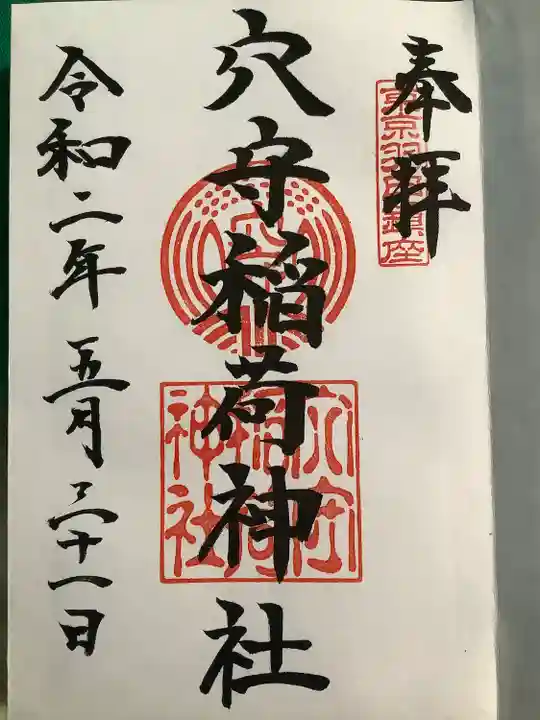 奉拝
東京羽田鎮座
穴守稲荷神社
穴守
稲荷
神社
令和二年五月三十一日